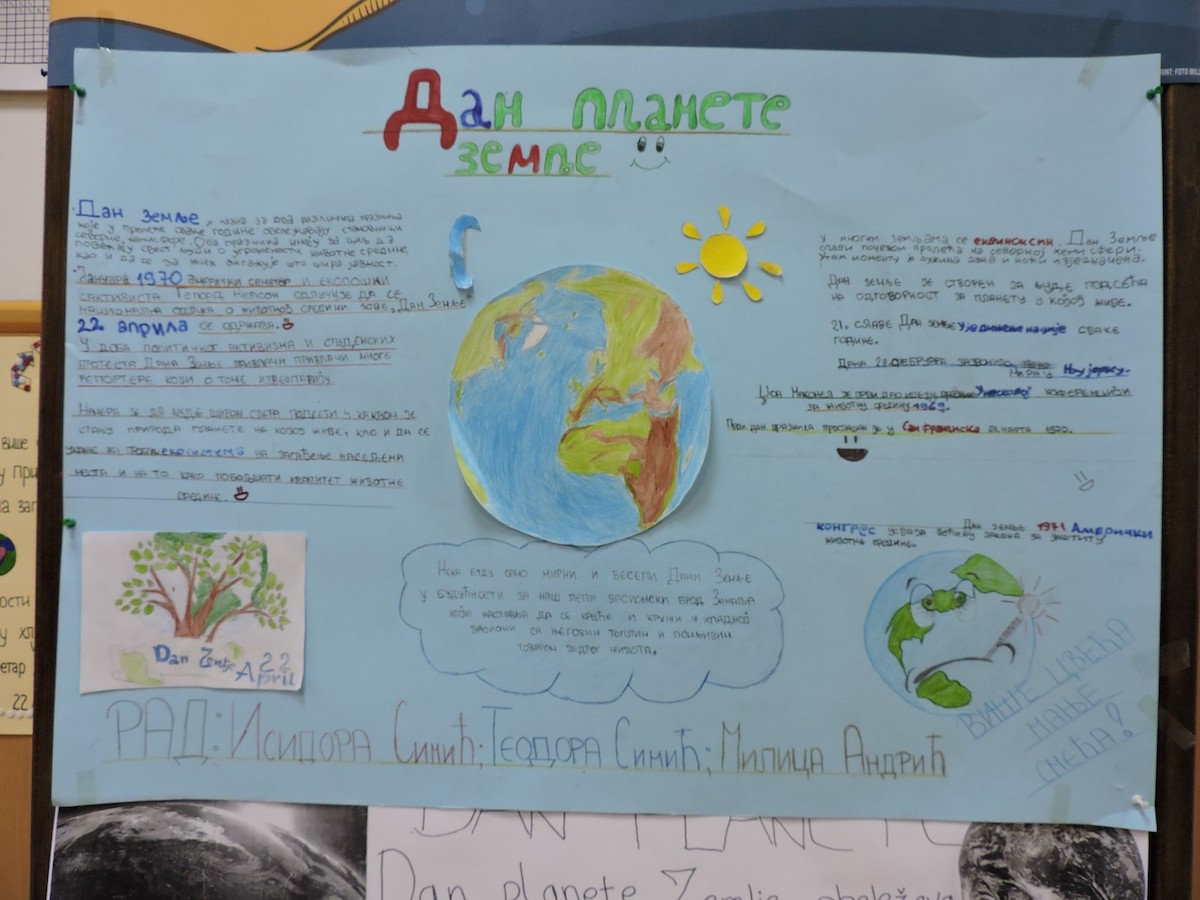 Дан планете
земље
Дан Земље, је назив за два различита празника
које у пролеће сваке године обележавају становници
северне хемисфере. Ова празника имају за циљ да
повећају свест људи о угрожености животне средине,
као и да се за њих ангажује што шира јавност.
Јануара 1970 амерички сенатор и еколошки
активиста Гејорд Нелсон одлучује да се
национална о животној средини зове „Дан Земље
22. априла се одржава.
У доба политичког активизма и студенских
протеста Дана Земље привлачи многе
репортере који о томе извештавају.
Намера је да људе широм света подсети у каквом је
стању природа планете на којој живе, као и да се
укаже на екосистема на загађење насељени
места и на то како побољшати квалитет животне
средине.
У многим земљама се еквиноксии. Дан Земље
слави почетком пролећа на северној хемисфери.
У том моменту је дужина дана и ноћи изједначена.
Дан земље је створен за људе подсећа
на одговорност за планету у којој живе.
21. славе Дан земље Уједињени нације сваке
године.
Дана 28. фебруара звоно Мира у Њу јорку.
Џон Маконел је први дао идеју конференцији
за животну средину 1969.
Први дан празника прославан је у Сан франциско 21. марта 1970.
Дан земље 1971 Амерички
конгрес усваја већину закона за заштиту
животне средине.
Нека буду само мирни и весели Дани Земље
у будућности за наш лепи васионски брод Земља
који наставља да се креће и кружи и хладној
васиони са његовим топлим и
товаром ведрог живота.
Dan Zemlje
22
April
ВИШЕ ЦВЕЋА
МАЊЕ
СМЕЋА!
РАД: Исидора Симић; Теодора Симић; Милица Андрић
DAN PLANETE
Dan planete Zemlje obeležava
више
у при
на заг
ости
у хл
етар
22
PRINT: FOTO